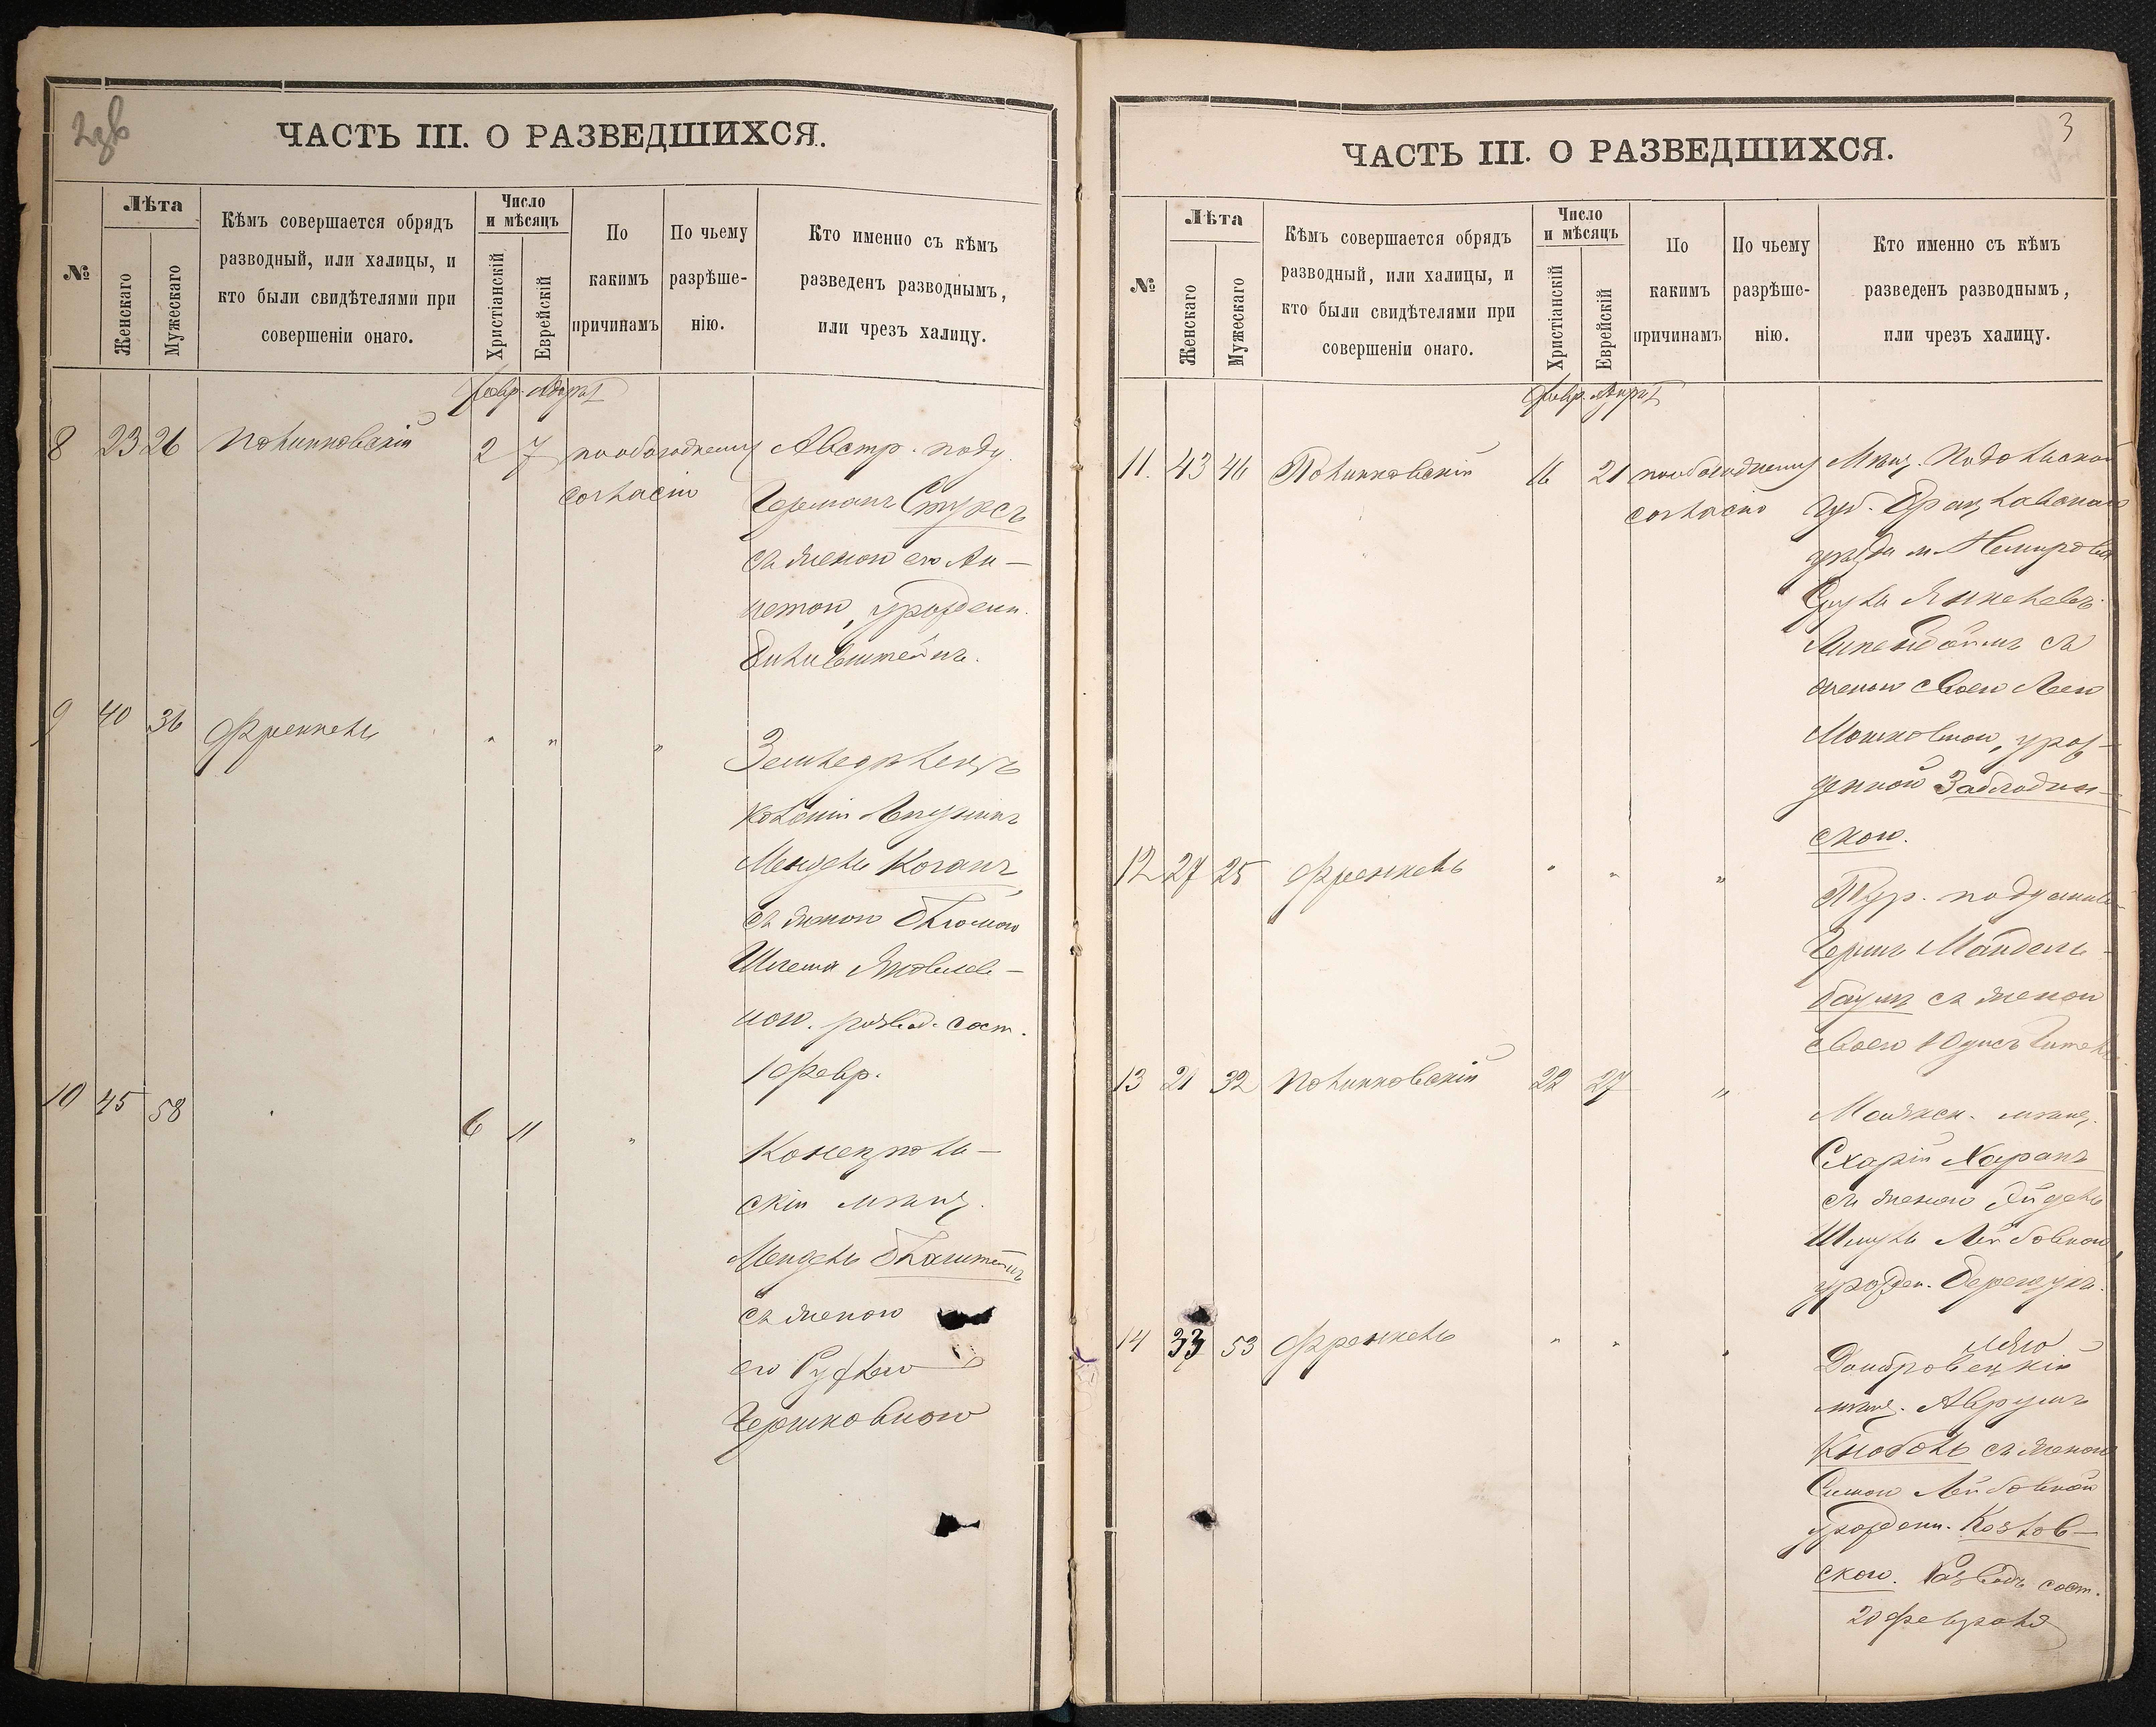 ЧАСТЬ III. О РАЗВЕДШИХСЯ.
№
Лѣта
Женскаго
Мужескаго
Кѣмъ совершается обрядъ
разводный, или халицы, и
кто были свидѣтелями при
совершеніи онаго.
Число
и мѣсяцъ
Христіанскій
Еврейскій
По
какимъ
причинамъ
По чьему
разрѣше-
нію.
Кто именно съ кѣмъ
разведенъ разводнымъ,
или чрезъ халицу.
Февр. Адаръ
8 23 26 Полинковскій 2 7 по обоюдному Австр. подд.
согласію Германъ Стуксъ
съ женою его Ан-
нетою, урожденн.
9 40 36 Френкель " " " Земледѣлецъ
колоніи
Мендель Коганъ
съ женою Блюмою
развод. сост.
10 Февр.
10 45 58 6 11 " Конецполь-
скій мѣщ.
Мендель
съ женою
его Рухлею
Гершковною
3
ЧАСТЬ III. О РАЗВЕДШИХСЯ.
№
Лѣта
Женскаго
Мужескаго
Кѣмъ совершается обрядъ
разводный, или халицы, и
кто были свидѣтелями при
совершеніи онаго.
Число
и мѣсяцъ
Христіанскій
Еврейскій
По
какимъ
причинамъ
По чьему
разрѣше-
нію.
Кто именно съ кѣмъ
разведенъ разводнымъ,
или чрезъ халицу.
Февр. Адаръ
11. 43 46 Полинковскій 16 21 по обоюдному Мѣщ. Подольской
согласію губ. Брацлавскаго
уѣзда м. Немирова
Сруль Янкелевъ
съ
женою своею Леею
Мошковною, урож-
денной Заблодин-
скою.
12 27 25 Френкель " " " Тур. подданный
Гершъ Мандель-
баумъ съ женою
своею
13 21 32 Полинковскій 22 27 " Маякск. мѣщ.
Схарій Харанъ
съ женою Эйдель
Лейбовною,
урожден.
14 33 53 Френкель " " " Домбровецкій
мѣщ. Аврумъ
Кнобель съ женою
Симою Лейбовной
урожденн. Козлов-
скою. Разводъ сост.
20 февраля